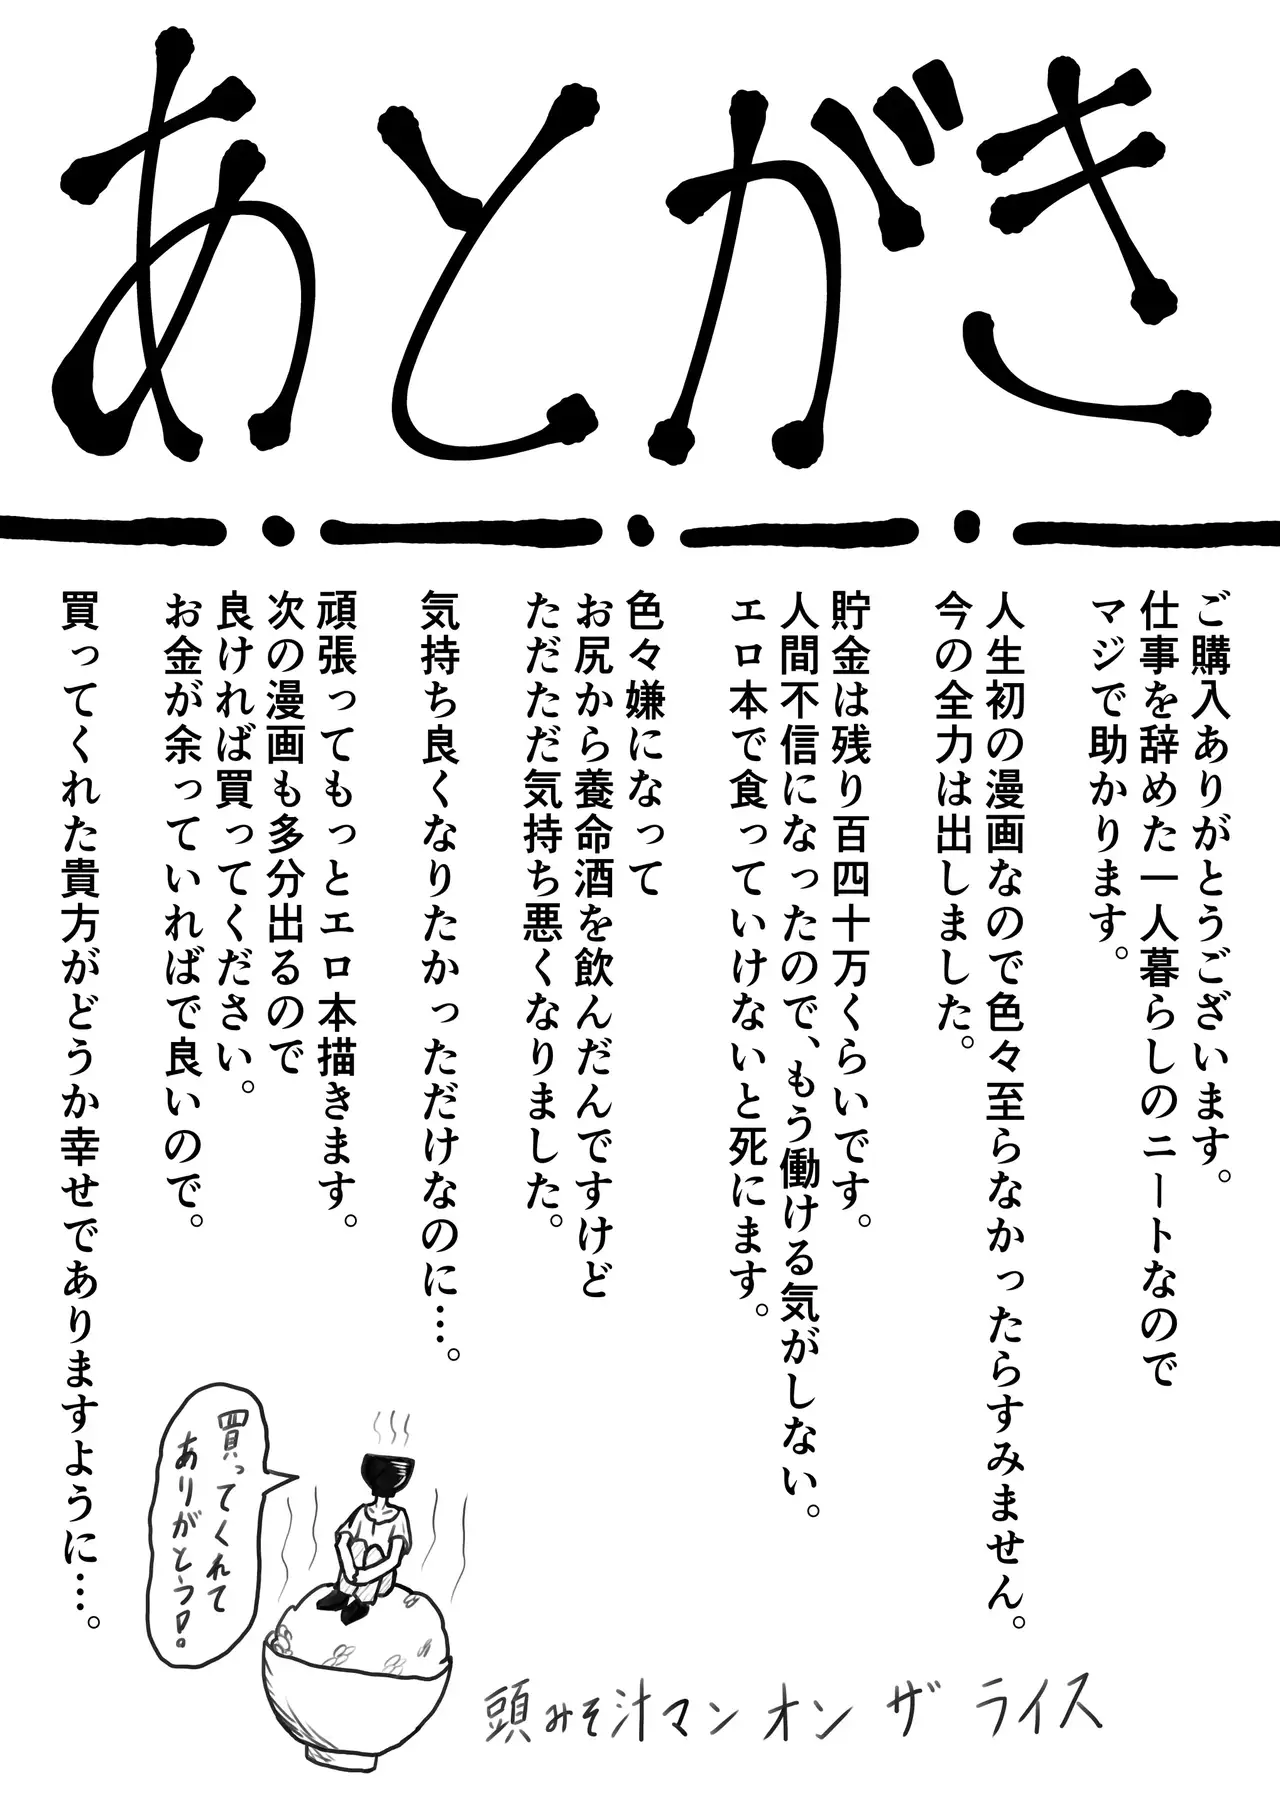 あとがき
ご購入ありがとうございます。
仕事を辞めた一人暮らしのニートなので
マジで助かります。
人生初の漫画なので色々至らなかったらすみません。
今の全力は出しました。
貯金は残り百四十万くらいです。
人間不信になったので、もう働ける気がしない。
エロ本で食っていけないと死にます。
色々嫌になって
お尻から養命酒を飲んだんですけど
ただただ気持ち悪くなりました。
気持ち良くなりたかっただけなのに…。
頑張ってもっとエロ本描きます。
次の漫画も多分出るので
良ければ買ってください。
お金が余っていればで良いので。
買ってくれた貴方がどうか幸せでありますように…。
買ってくれて
ありがとう。
頭みそ汁マン オン ザ ライス